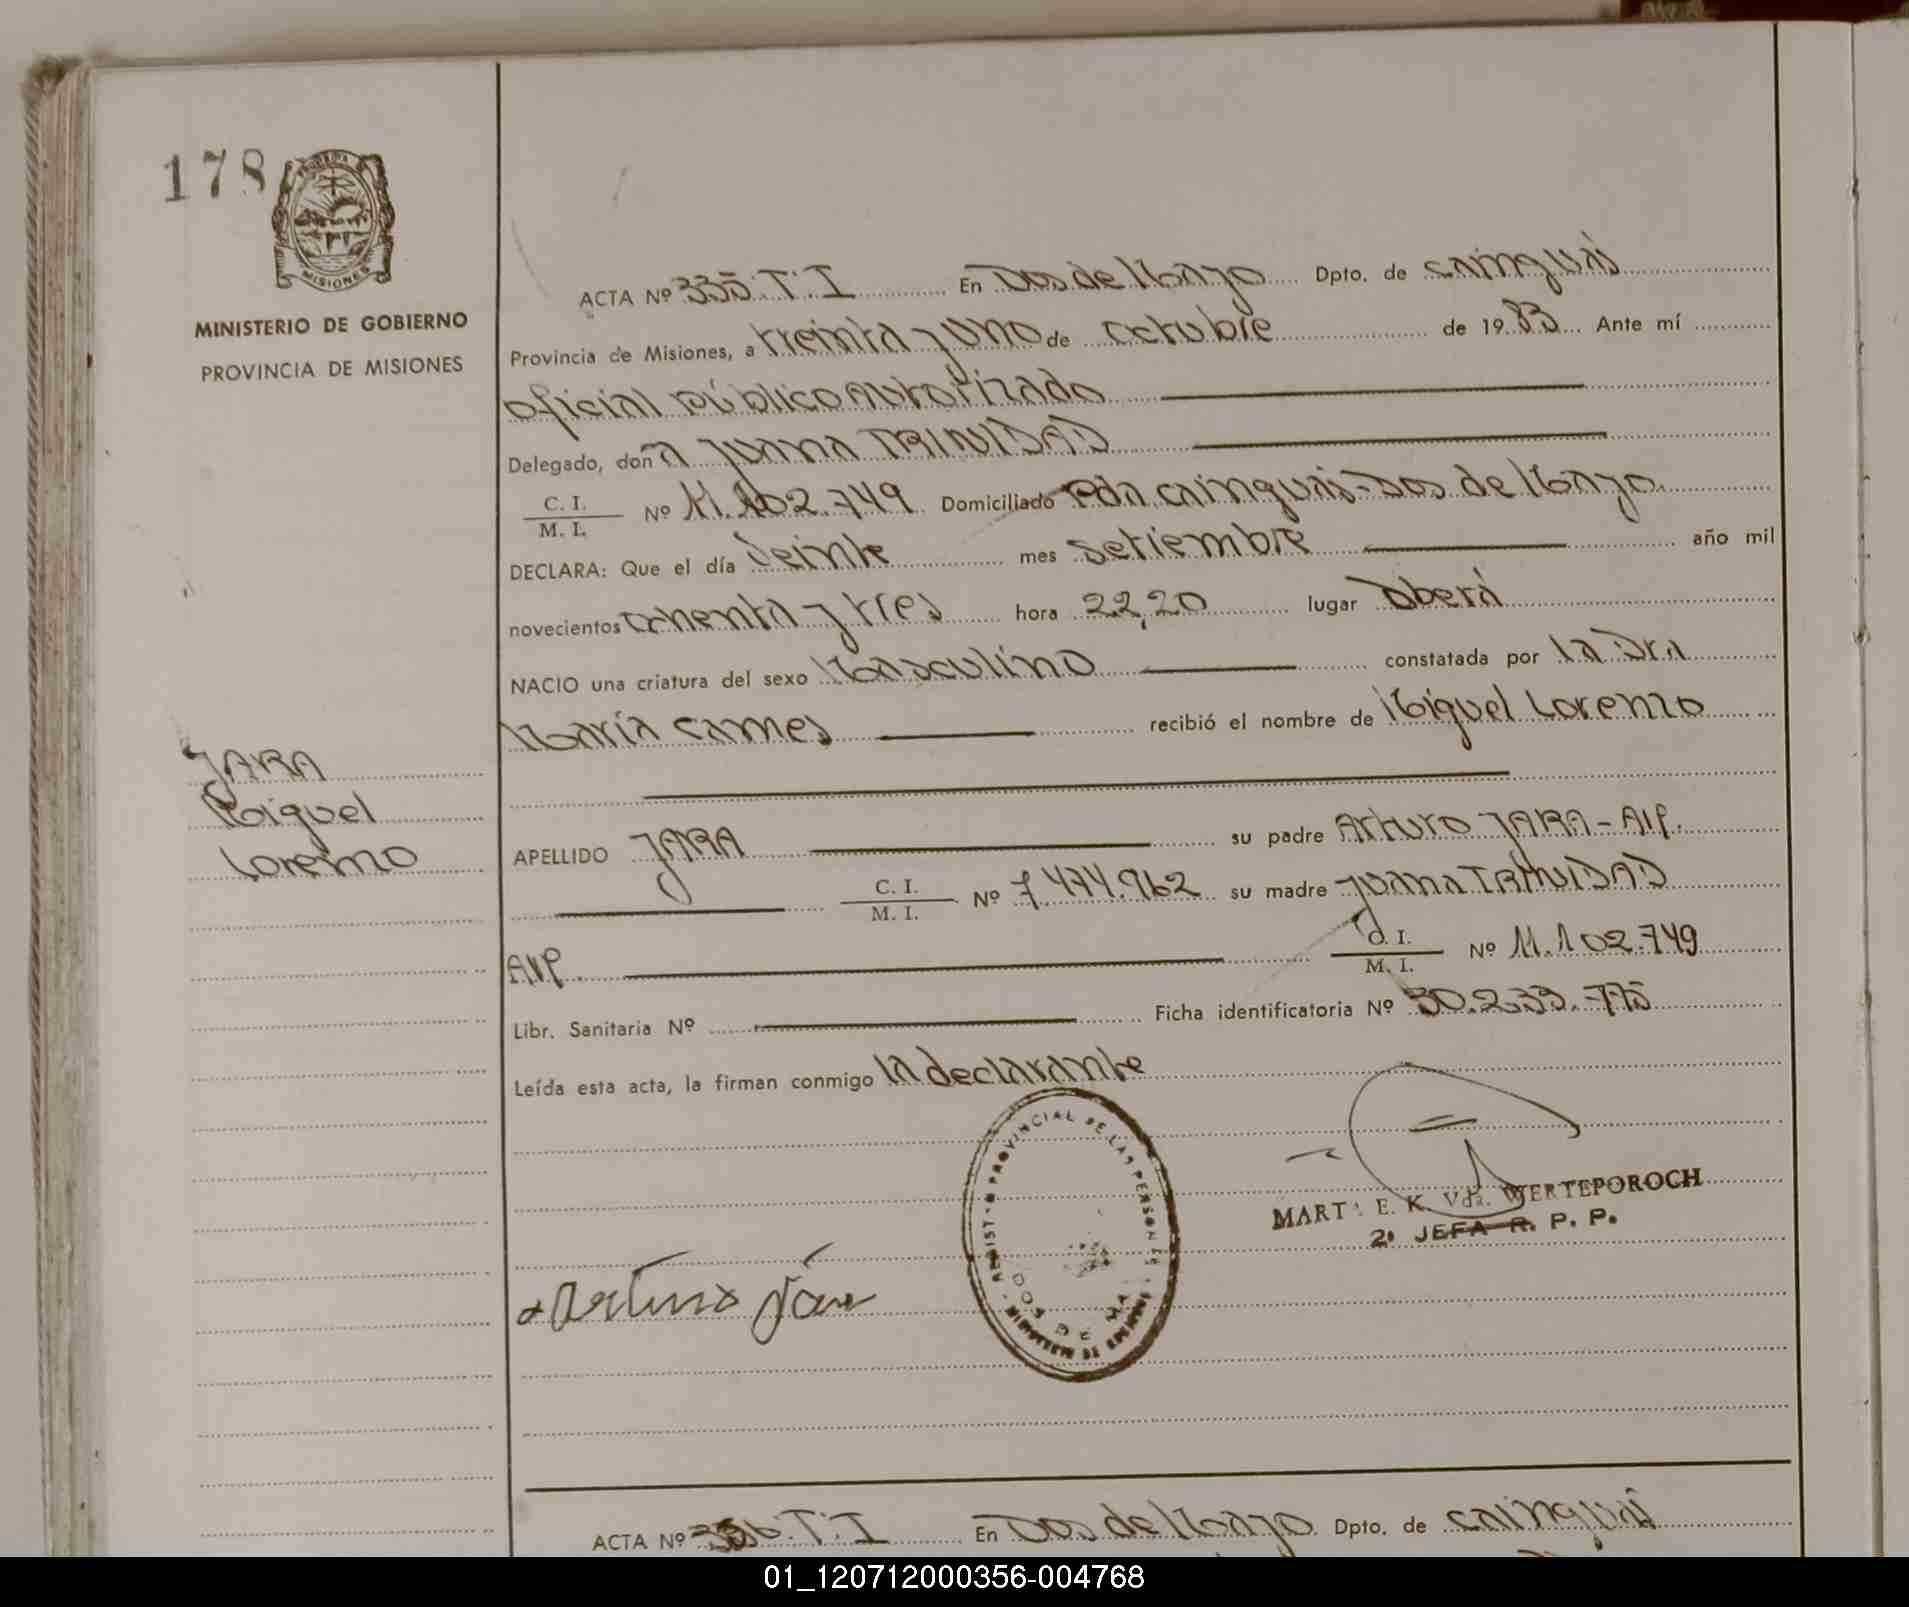 178
MISIONES
MINISTERIO DE GOBIERNO
PROVINCIA DE MISIONES
JARA
Miguel
Lorenzo
ACTA Nº 335 T. I En Dos de Mayo Dpto. de Cainguás
Provincia de Misiones, a treinta y uno de octubre de 1983 Ante mí
oficial público autorizado
Delegado, don a Juana TRINIDAD
C. I. / M. I. Nº 11.102.749 Domiciliado Pda. Cainguás-Dos de Mayo.
DECLARA: Que el día veinte mes setiembre año mil
novecientos ochenta y tres hora 22,20 lugar Oberá
NACIO una criatura del sexo Masculino constatada por la Dra
María Cames recibió el nombre de Miguel Lorenzo
APELLIDO JARA su padre Arturo JARA - Arp.
C. I. / M. I. Nº 7.474.962 su madre Juana TRINIDAD
Arp. C. I. / M. I. Nº 11.102.749
Libr. Sanitaria Nº Ficha identificatoria Nº 30.239.775
Leída esta acta, la firman conmigo la declarante
PROVINCIAL DE LAS PERSONAS
MART E. K. Vda. WERTEPOROCH
2º JEFA R. P. P.
Arturo Jara
ACTA Nº 336 T. I En Dos de Mayo Dpto. de Cainguás
01_120712000356-004768